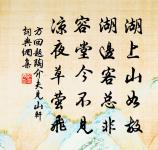 湖上山如故
湖邊客總非
容堂今不見
涼夜草螢飛
方回題陶介夫見山軒